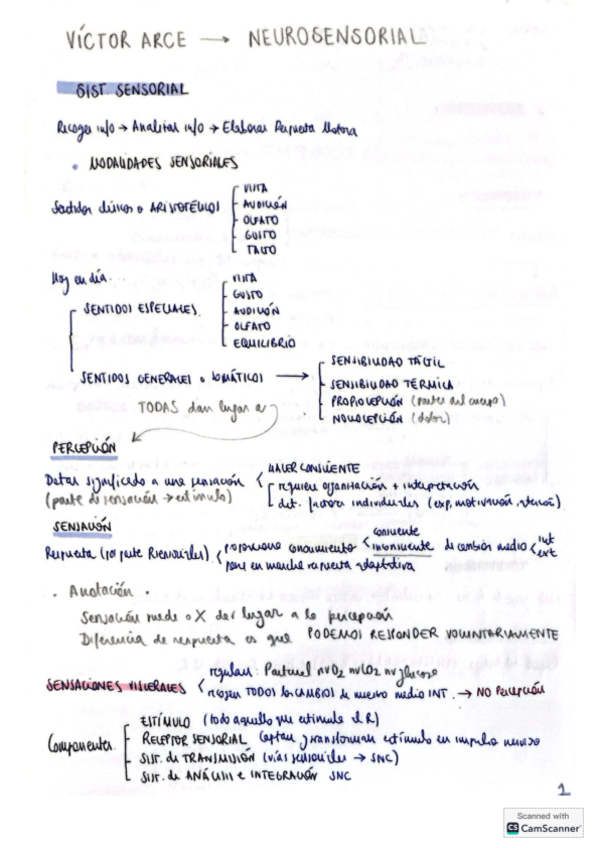 VÍCTOR ARCE → NEUROSENSORIAL
SIST. SENSORIAL
Recoger info → Analizar info → Elaborar Respuesta Motora
• MODALIDADES SENSORIALES
Sentidos clásicos o ARISTOTÉLICOS
VISTA
AUDICIÓN
OLFATO
GUSTO
TACTO
Hoy en día...
SENTIDOS ESPECIALES
VISTA
GUSTO
AUDICIÓN
OLFATO
EQUILIBRIO
SENTIDOS GENERALES o SOMÁTICOS →
SENSIBILIDAD TÁCTIL
SENSIBILIDAD TÉRMICA
PROPIOCEPCIÓN (partes del cuerpo)
NOCICEPCIÓN (dolor)
TODAS dan lugar a
PERCEPCIÓN
Dotar significado a una sensación
(parte de sensación → estímulo)
HACER CONSCIENTE
requiere organización e interpretación
det. factores individuales (exp, motivación, atención)
SENSACIÓN
Respuesta (por parte R sensoriales)
proporciona conocimiento
consciente
inconsciente
de cambios medio
int
ext
pone en marcha respuesta adaptativa
• Anotación •
Sensación puede o X dar lugar a la percepción
Diferencia de respuesta es que PODEMOS RESPONDER VOLUNTARIAMENTE
SENSACIONES VISCERALES
regulan: Part nvO2 nvCO2 nv glucosa
recogen TODOS los CAMBIOS de nuestro medio INT. → NO Percepción
Componentes
ESTÍMULO (todo aquello que estimule el R)
RECEPTOR SENSORIAL captan y transforman estímulo en impulso nervioso
SIST. de TRANSMISIÓN (vías sensoriales → SNC)
SIST. de ANÁLISIS e INTEGRACIÓN SNC
1
Scanned with
CS CamScanner